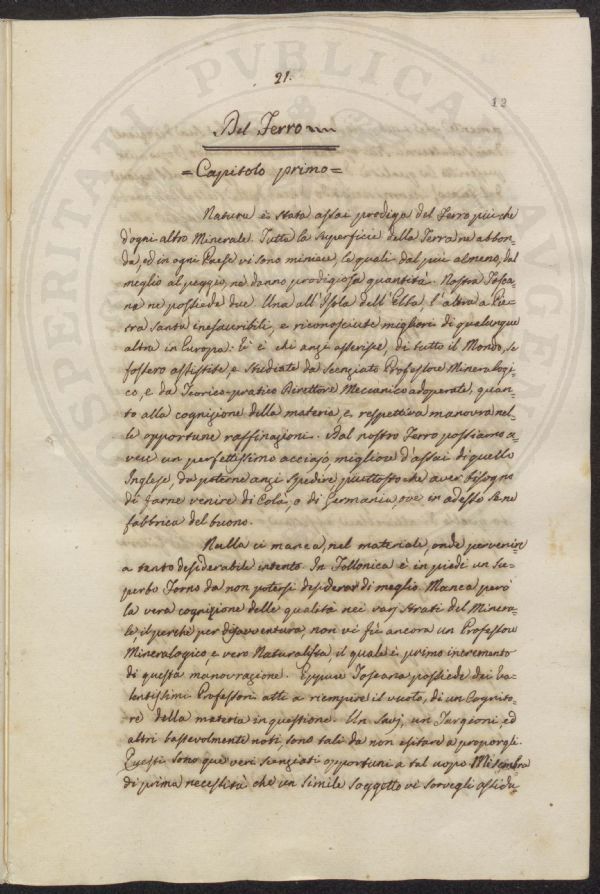 21.
12
Del Ferro
= Capitolo primo =
Natura è stata assai prodiga del Ferro più che
d'ogni altro Minerale. Tutta la superficie della Terra ne abbon-
da, ed in ogni Paese vi sono miniere, le quali dal più al meno, dal
meglio al peggio, ne danno prodigiosa quantità. Nostra Tosca-
na ne possiede due. Una all'Isola dell'Elba, l'altra a Pie-
tra Santa inesauribili, e riconosciute migliori di qualunque
altra in Europa: Ei è chi anzi asserisce, di tutto il Mondo, se
fossero assistite, e studiate da Scenziato Professore Mineralogi-
co, e da Teorico-pratico Direttore Meccanico adoperate, quan-
to alla cognizione della materia, e respettiva manovra nel-
le opportune raffinazioni. Dal nostro Ferro possiamo a-
vere un perfettissimo acciajo, migliore d'assai di quello
Inglese, da poterne anzi spedire, piuttosto che aver bisogno
di farne venire di Colà, o di Germania, ove in adesso se ne
fabbrica del buono.
Nulla ci manca, nel materiale, onde pervenire
a tanto desiderabile intento. In Follonica è in piedi un Su-
perbo Forno da non potersi desiderar di meglio. Manca però
la vera cognizione delle qualità nei varj strati del Minera-
le, il perchè per disavventura, non vi fù ancora un Professore
Mineralogico, e vero Naturalista, il quale è primo incremento
di questa manovrazione. Eppure Toscana possiede dei Va-
lentissimi Professori atti a riempire il vuoto, di un Cognito-
re della materia in questione. Un Savj, un Targioni, ed
altri bastevolmente noti, sono tali da non esitare a proporgli.
Questi sono que' veri scenziati opportuni a tal uopo. Mi sembra
di prima necessità che un simile soggetto vi sorvegli assidu